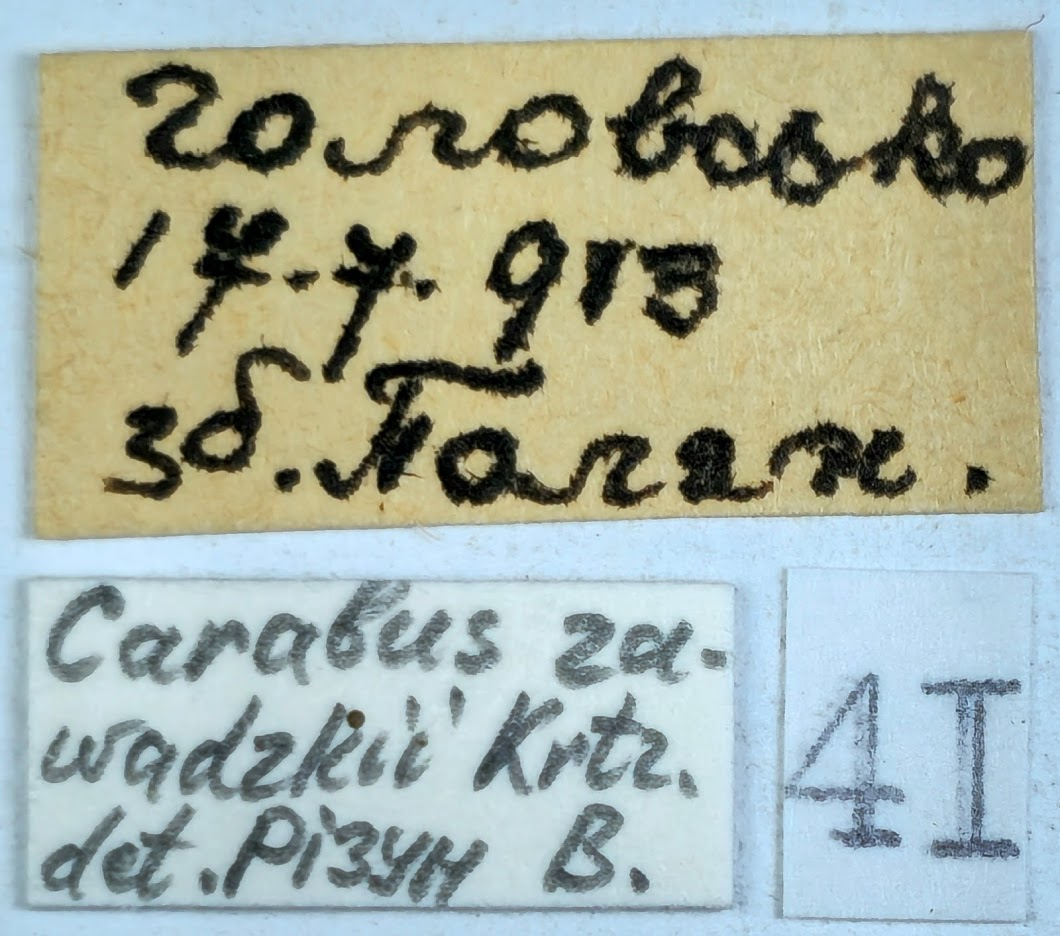 Головсько
17.7.913
зб. Полян.
Carabus za-
wadzkii Krtz.
det. Різун В.
4I